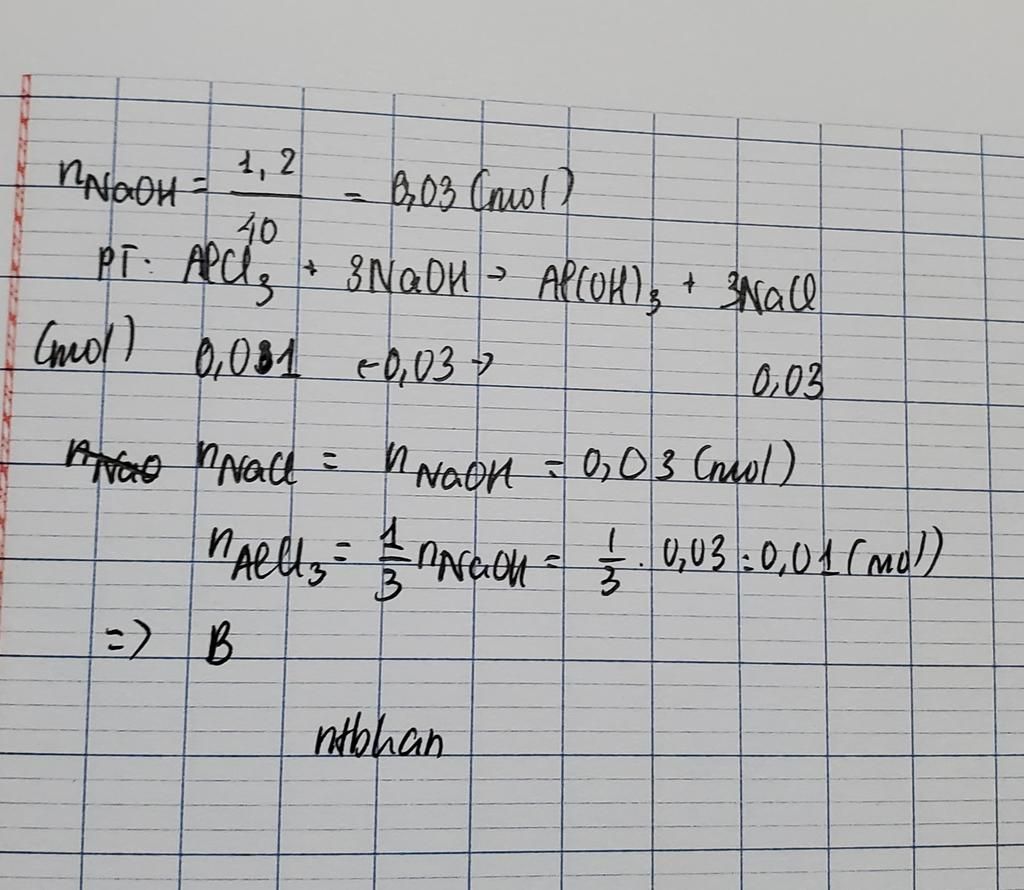 nNaOH = 1,2/40 = 0,03 (mol)
PT: AlCl3 + 3NaOH → Al(OH)3 + 3NaCl
(mol) 0,01 ←0,03→ 0,03
nNaO nNaCl = nNaOH = 0,03 (mol)
nAlCl3 = 1/3 nNaOH = 1/3 . 0,03 = 0,01 (mol)
=> B
ntbhan